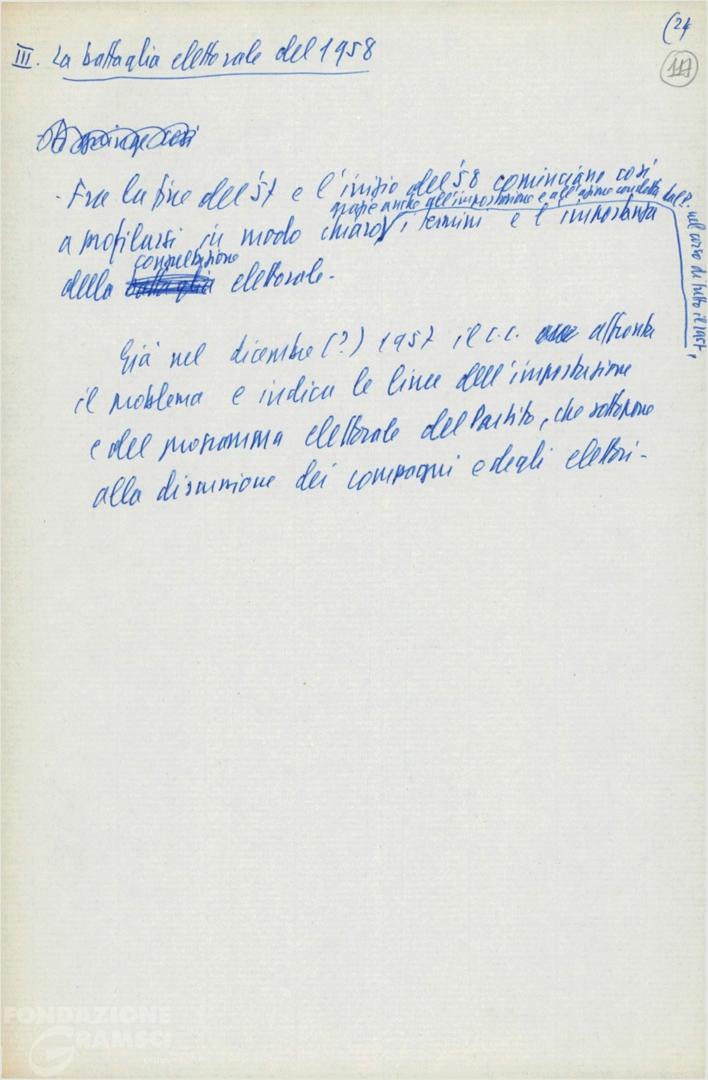 (24
117
III. La battaglia elettorale del 1958
- Fra la fine del '57 e l'inizio del '58 cominciano così
grazie anche all'impostazione e all'azione condotta dal P. nel corso di tutto il 1957,
a profilarsi in modo chiaro i termini e l'importanza
consultazione
della battaglia elettorale.
Già nel dicembre (?) 1957 il C.C. affronta
il problema e indica le linee dell'impostazione
e del programma elettorale del Partito, che sottopone
alla discussione dei compagni e degli elettori -
FONDAZIONE
GRAMSCI